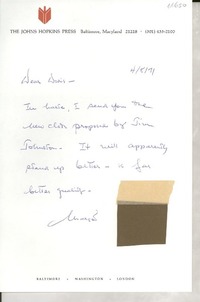 1/634
THE JOHNS HOPKINS PRESS Baltimore, Maryland 21218 · (301) 633-2100
4/8/71
Dear Doris -
In haste, I send you the
new cloth proposed by Jim
Johnston. It will apparently
stand up better - is far
better quality.
BALTIMORE · WASHINGTON · LONDON